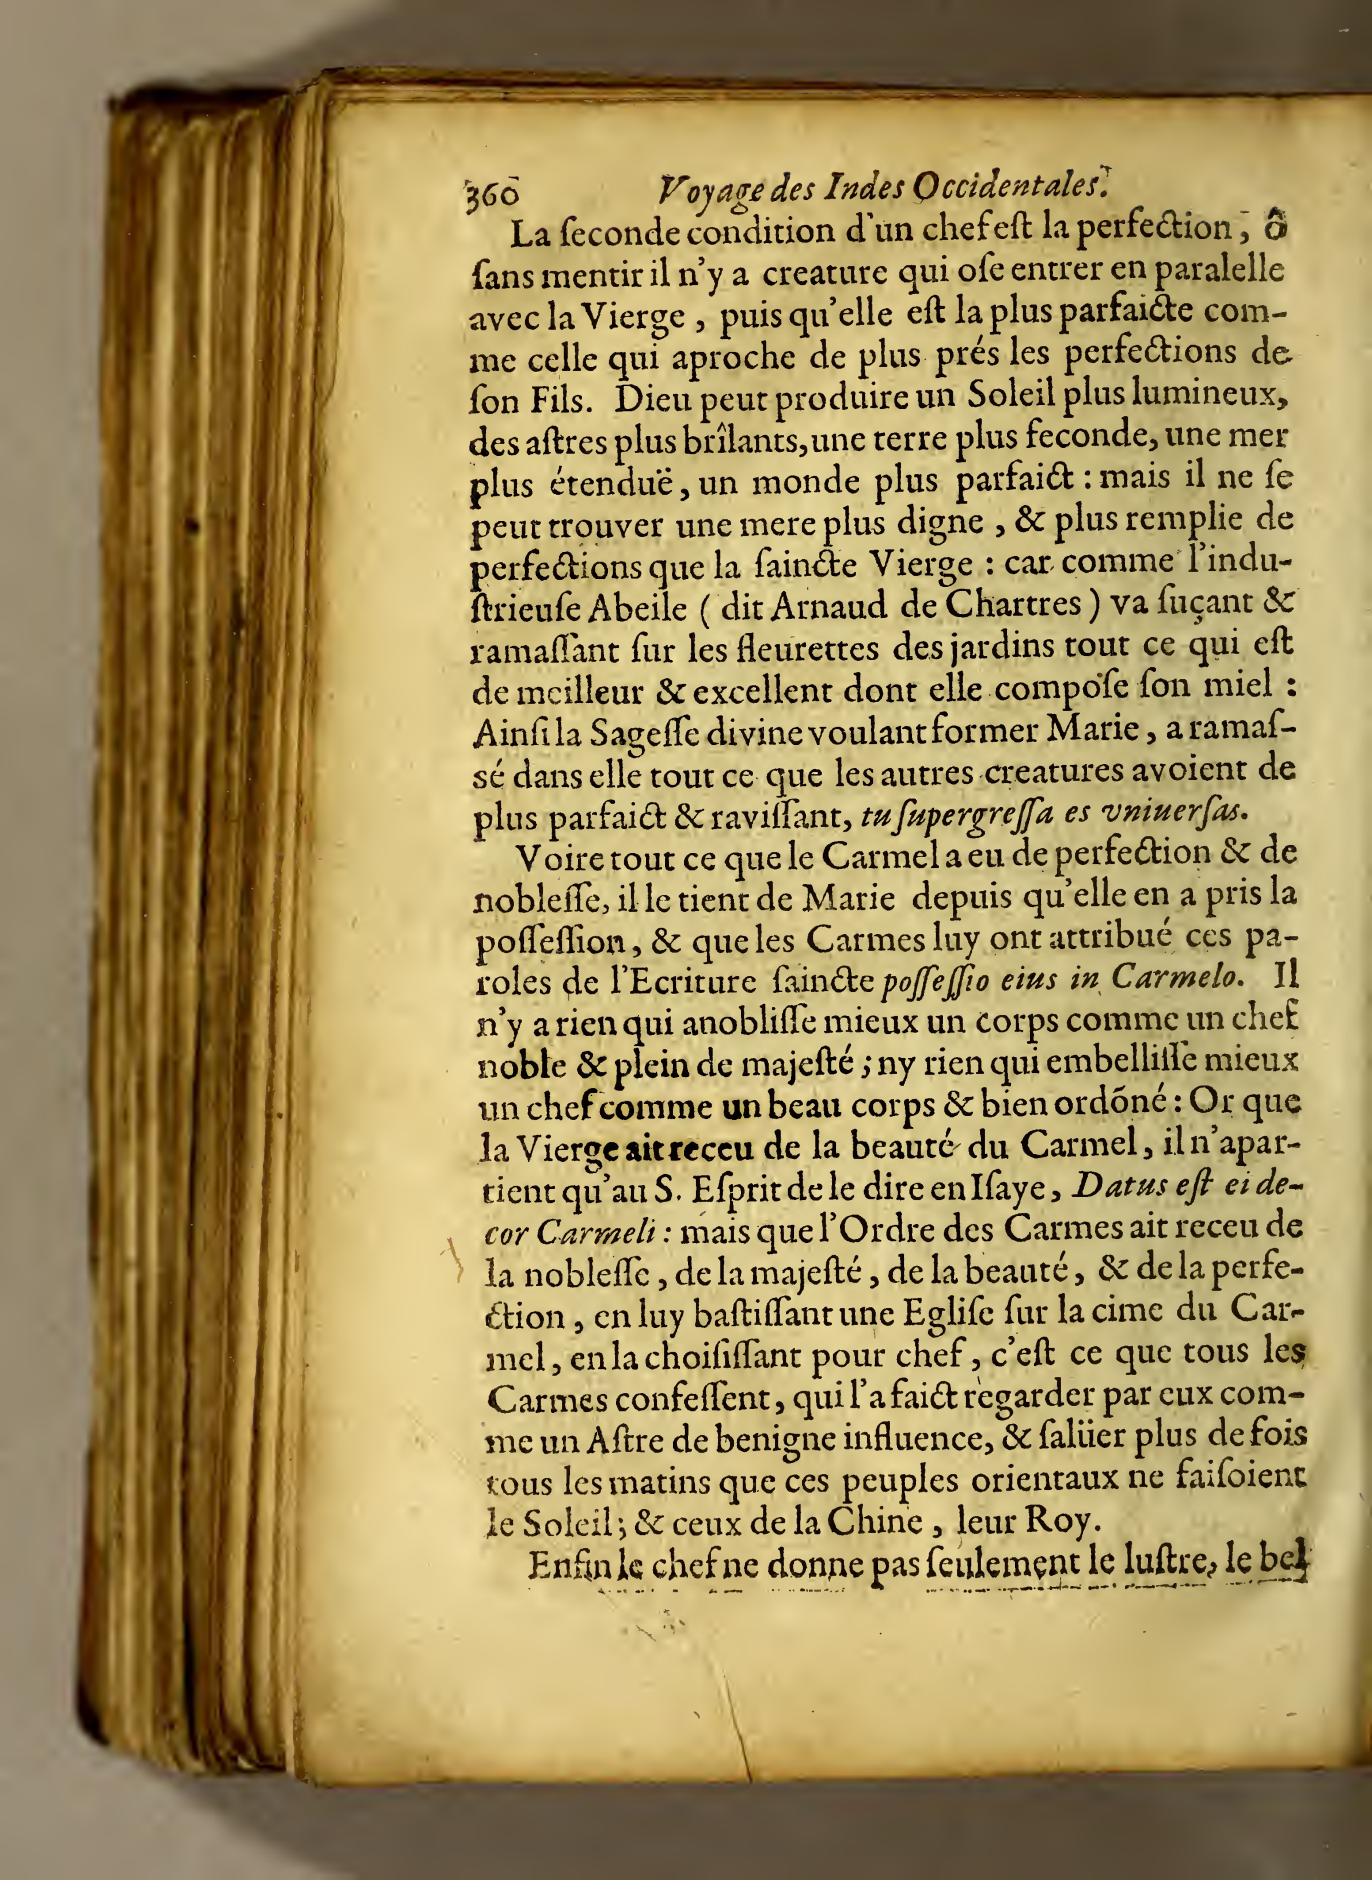 360 Voyage des Indes Occidentales.
La ſeconde condition d'un chef eſt la perfection, ô
ſans mentir il n'y a creature qui oſe entrer en paralelle
avec la Vierge, puis qu'elle eſt la plus parfaicte com-
me celle qui aproche de plus prés les perfections de
ſon Fils. Dieu peut produire un Soleil plus lumineux,
des aſtres plus brîlants, une terre plus feconde, une mer
plus étenduë, un monde plus parfaict : mais il ne ſe
peut trouver une mere plus digne, & plus remplie de
perfections que la ſaincte Vierge : car comme l'indu-
ſtrieuſe Abeile ( dit Arnaud de Chartres ) va ſuçant &
ramaſſant ſur les fleurettes des jardins tout ce qui eſt
de meilleur & excellent dont elle compoſe ſon miel :
Ainſi la Sageſſe divine voulant former Marie, a ramaſ-
sé dans elle tout ce que les autres creatures avoient de
plus parfaict & raviſſant, tu ſupergreſſa es vniuerſas.
Voire tout ce que le Carmel a eu de perfection & de
nobleſſe, il le tient de Marie depuis qu'elle en a pris la
poſſeſſion, & que les Carmes luy ont attribué ces pa-
roles de l'Ecriture ſaincte poſſeſſio eius in Carmelo. Il
n'y a rien qui anobliſſe mieux un corps comme un chef
noble & plein de majeſté ; ny rien qui embelliſſe mieux
un chef comme un beau corps & bien ordõné : Or que
la Vierge ait receu de la beauté du Carmel, il n'apar-
tient qu'au S. Eſprit de le dire en Iſaye, Datus eſt ei de-
cor Carmeli : mais que l'Ordre des Carmes ait receu de
la nobleſſe, de la majeſté, de la beauté, & de la perfe-
ction, en luy baſtiſſant une Egliſe ſur la cime du Car-
mel, en la choiſiſſant pour chef, c'eſt ce que tous les
Carmes confeſſent, qui l'a faict regarder par eux com-
me un Aſtre de benigne influence, & ſalüer plus de fois
tous les matins que ces peuples orientaux ne faiſoient
le Soleil ; & ceux de la Chine, leur Roy.
Enfin le chef ne donne pas ſeulement le luſtre, le bel